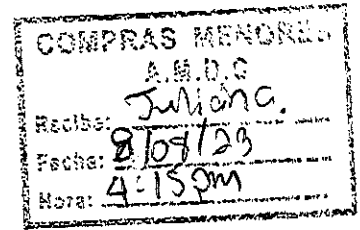 COMPRAS MENORES
A.M.D.C
Recibe: Juliana.
Fecha: 8/08/23
Hora: 4:15pm